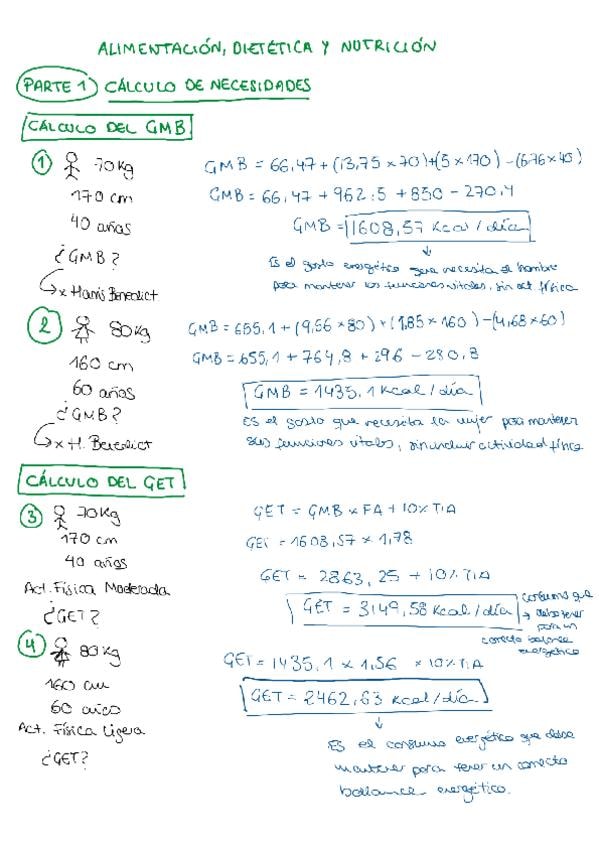 ALIMENTACIÓN, DIETÉTICA Y NUTRICIÓN
PARTE 1 CÁLCULO DE NECESIDADES
CÁLCULO DEL GMB
1 70 Kg
170 cm
40 años
¿GMB?
x Harris Benedict
GMB = 66,47 + (13,75 x 70) + (5 x 170) - (6,76 x 40)
GMB = 66,47 + 962,5 + 850 - 270,4
GMB = 1608,57 Kcal / día
Es el gasto energético que necesita el hombre
para mantener las funciones vitales, sin act. física
2 80 Kg
160 cm
60 años
¿GMB?
x H. Benedict
GMB = 655,1 + (9,56 x 80) + (1,85 x 160) - (4,68 x 60)
GMB = 655,1 + 764,8 + 296 - 280,8
GMB = 1435,1 Kcal / día
Es el gasto que necesita la mujer para mantener
sus funciones vitales, sin incluir actividad física
CÁLCULO DEL GET
3 70 Kg
170 cm
40 años
Act. Física Moderada
¿GET?
GET = GMB x FA + 10% TIA
GET = 1608,57 x 1,78
GET = 2863,25 + 10% TIA
GET = 3149,58 Kcal / día
consumo que
debe tener
para un
correcto balance
energético
4 80 Kg
160 cm
60 años
Act. Física Ligera
¿GET?
GET = 1435,1 x 1,56 x 10% TIA
GET = 2462,63 Kcal / día
Es el consumo energético que debe
mantener para tener un correcto
ballance energético.